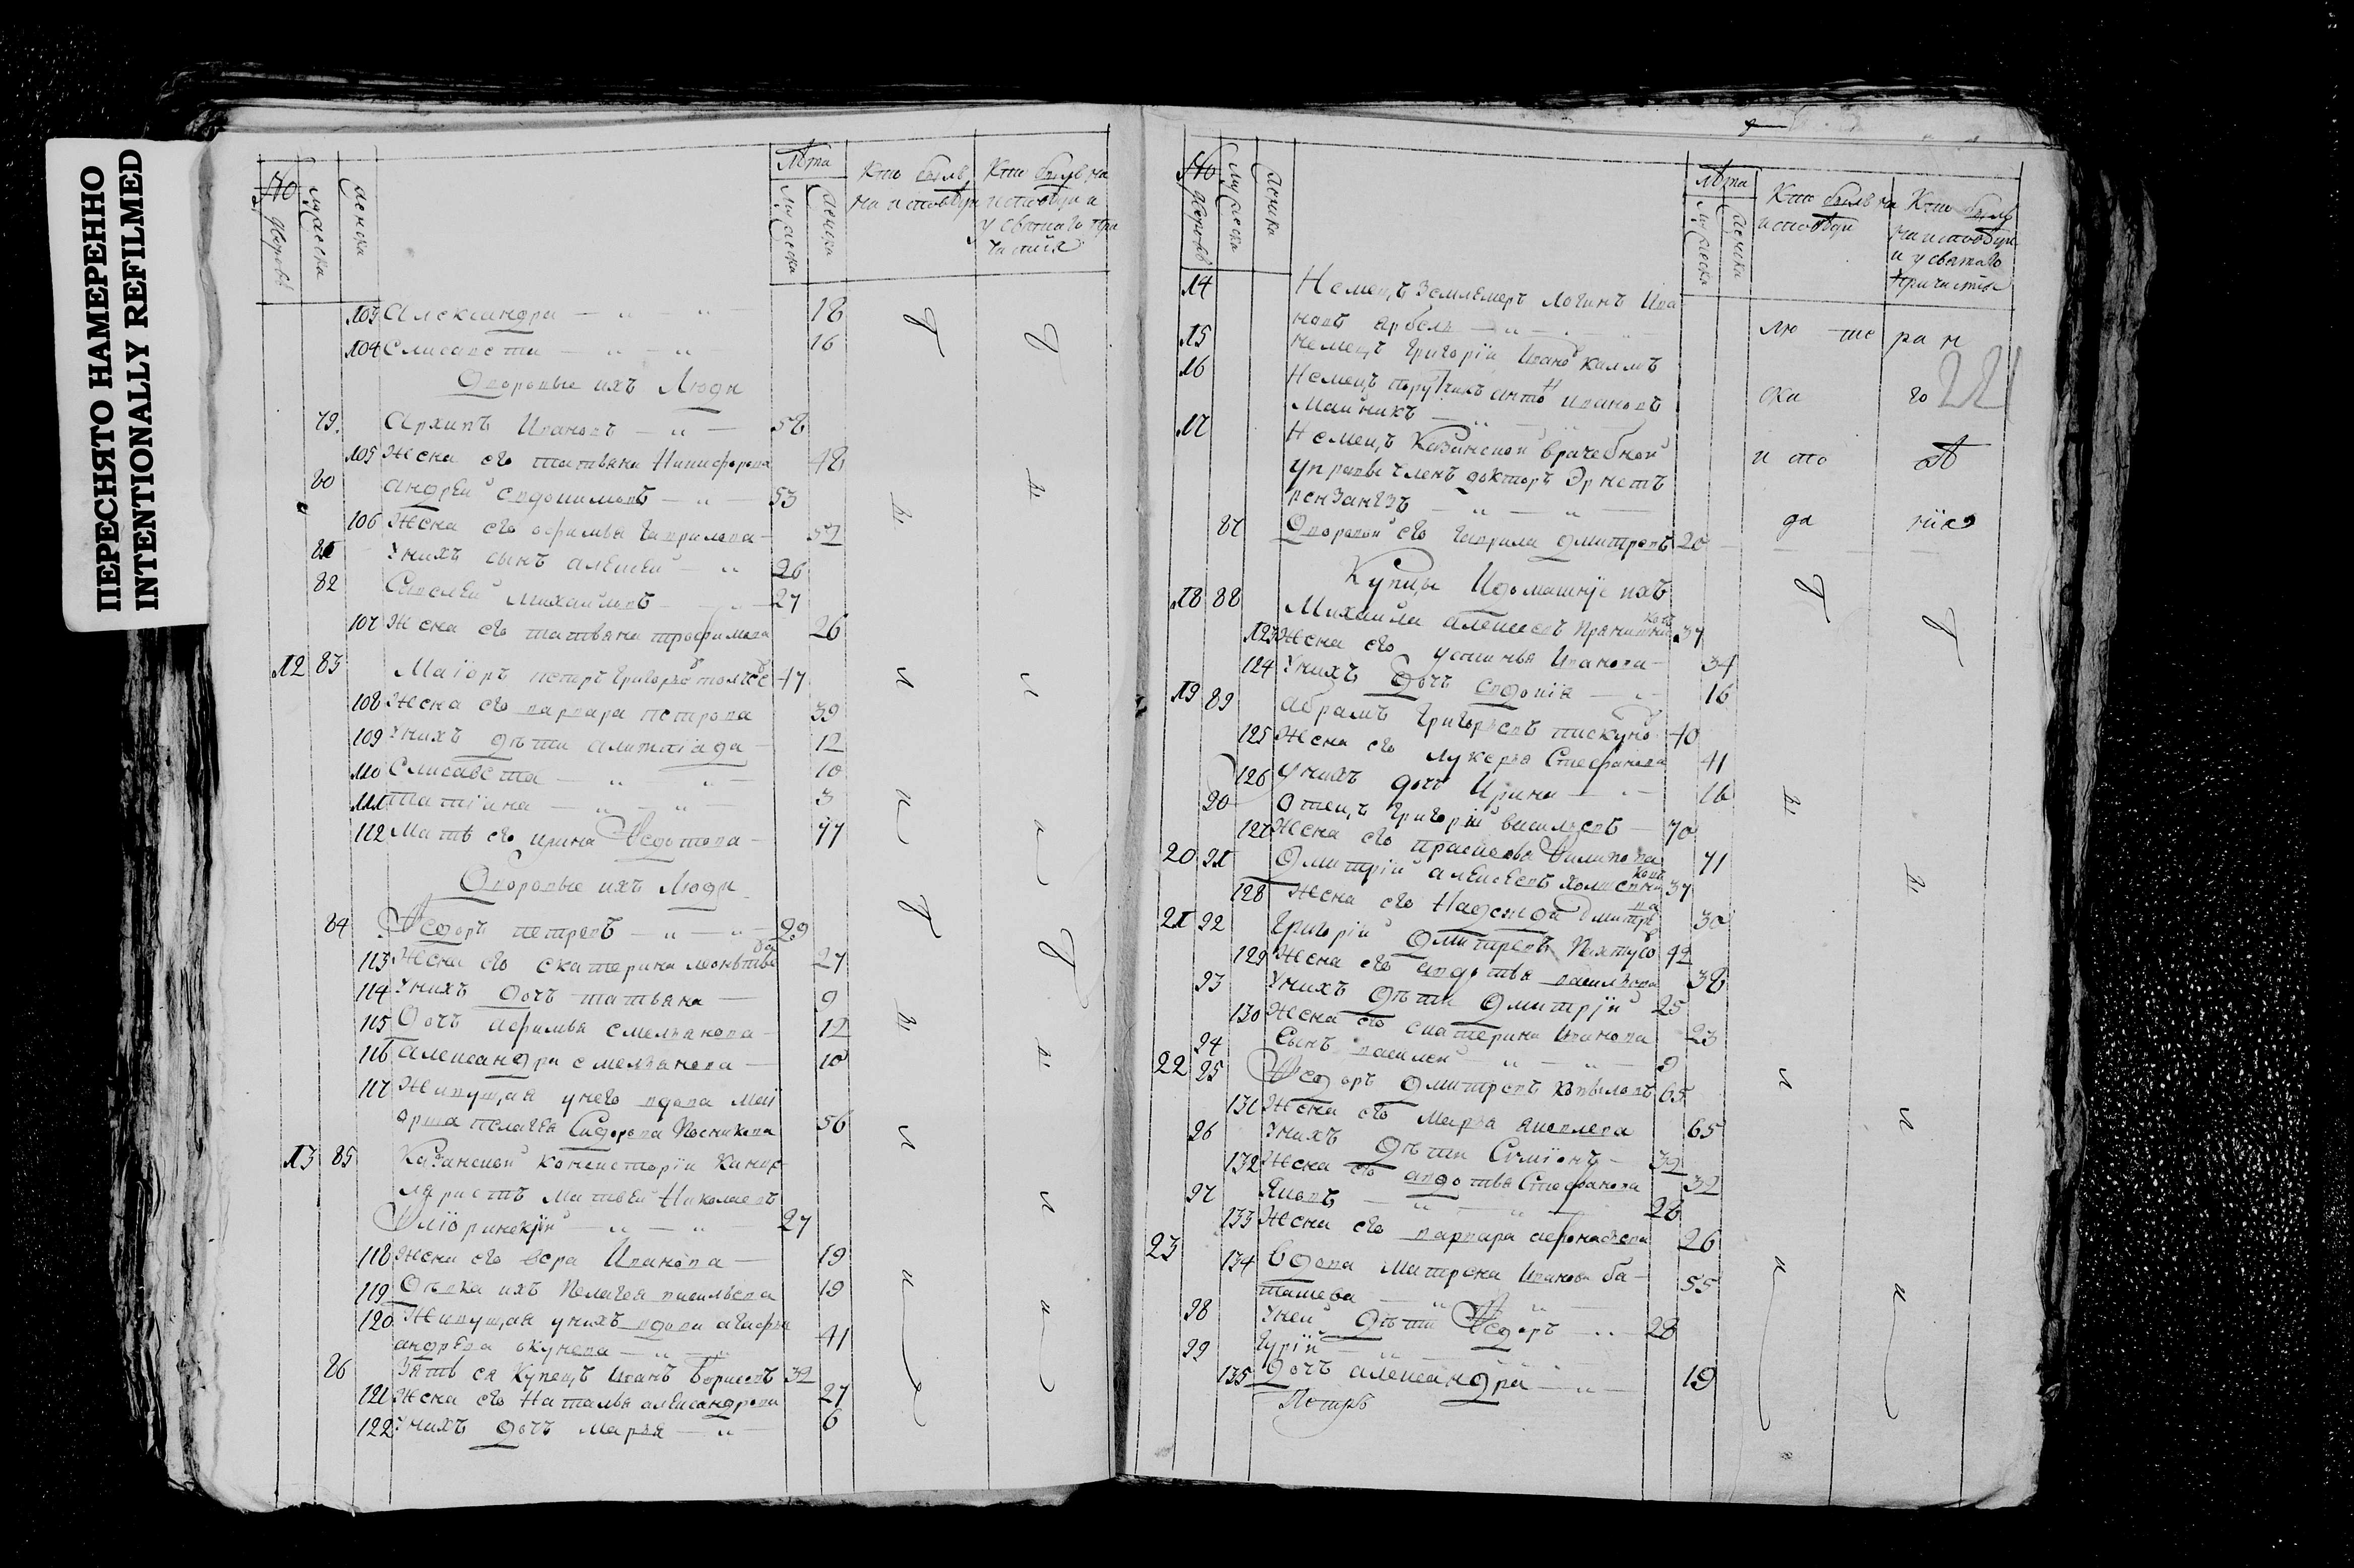 ПЕРЕСНЯТО НАМЕРЕННО
INTENTIONALLY REFILMED
№ дворовъ
мужеска
женска
Лѣта
мужеска
женска
Кто былъ на исповѣди
Кто былъ на исповѣди и у святаго причастія
103 Александра — 18
104 Елисавета — 16
Дворовые ихъ Люди
79. Архипъ Ивановъ — 58
105 Жена его татьяна Никифорова 48
80 андрей евдокимовъ — 53
106 Жена его офимья Гаврилова
У нихъ сынъ алексей — 26
82 Савелей михаиловъ — 27
107 Жена его татьяна трофимова 26
12 83 Маіоръ петръ Григорьевъ 47
108 Жена его варвара петрова 39
109 У нихъ дѣти 12
110 Елисавета — 10
111 татіяна — 3
112 Мать его ирина Ѳедотова — 77
Дворовые ихъ Люди
84 Ѳедоръ петровъ — 29
113 Жена его екатерина 27
114 У нихъ дочь татьяна — 9
115 Дочь афимья емельянова — 12
116 александра емельянова — 10
117 Живущая у него вдова маі
орша пелагея Сидорова Посникова 56
13 85 Казанской консисторіи канце
ляристъ Матвей Николаевъ
27
118 Жена его вера Иванова — 19
119 Дѣвка ихъ Пелагея васильева 19
120 Живущая у нихъ вдова агафья
андреева окунева — 41
86 Зять ея Купецъ Иванъ борисовъ 32
121 Жена его Наталья александрова 27
122 У нихъ дочь марья — 6
№ дворовъ
мужеска
женска
Лѣта
мужеска
женска
Кто былъ на исповѣди
Кто былъ на исповѣди и у святаго причастія
14 Немецъ Землемеръ Логинъ Ива
новъ
15 немецъ Григорій Ивановъ
16 Немецъ порутчикъ антонъ ивановъ
Майникъ
17 Немецъ Казанской врачебной
управы членъ докторъ Эрнетъ
лю те ран
ска го
221
и спо вѣ
да нія
87 Дворовой его Гаврила дмитревъ 20
Купцы И домашніе ихъ
18 88 Михаила алексеевъ Прянишниковъ 37
123 Жена его устинья Иванова — 34
124 У нихъ дочь евдокія — 16
19 89 абрамъ Григорьевъ пискуновъ 40
125 Жена его лукерья Стефанова 41
126 У нихъ дочь Ирина — 16
90 Отецъ Григорій васильевъ — 70
127 Жена его прасковья Филипова 71
20 91 Дмитрій алексеевъ 37
128 Жена его Надежда Дмитрева 30
21 92 Григорій Дмитревъ Пѣхтусовъ 42
129 Жена его авдотья васильева 38
93 У нихъ дѣти Дмитрій 25
130 Жена его екатерина Иванова 23
94 Сынъ василей — 9
22 95 Ѳедоръ дмитревъ копыловъ 65
131 Жена его Марья яковлева 65
96 У нихъ Дѣти Симіонъ — 32
132 Жена его авдотья Стефанова 32
97 Яковъ — 28
133 Жена его варвара афонасьева 26
23 134 Вдова Матрена Иванова ба
ташева — 55
98 У ней Дѣти Ѳедоръ — 28
99 Гурій —
135 Дочь александра — 19